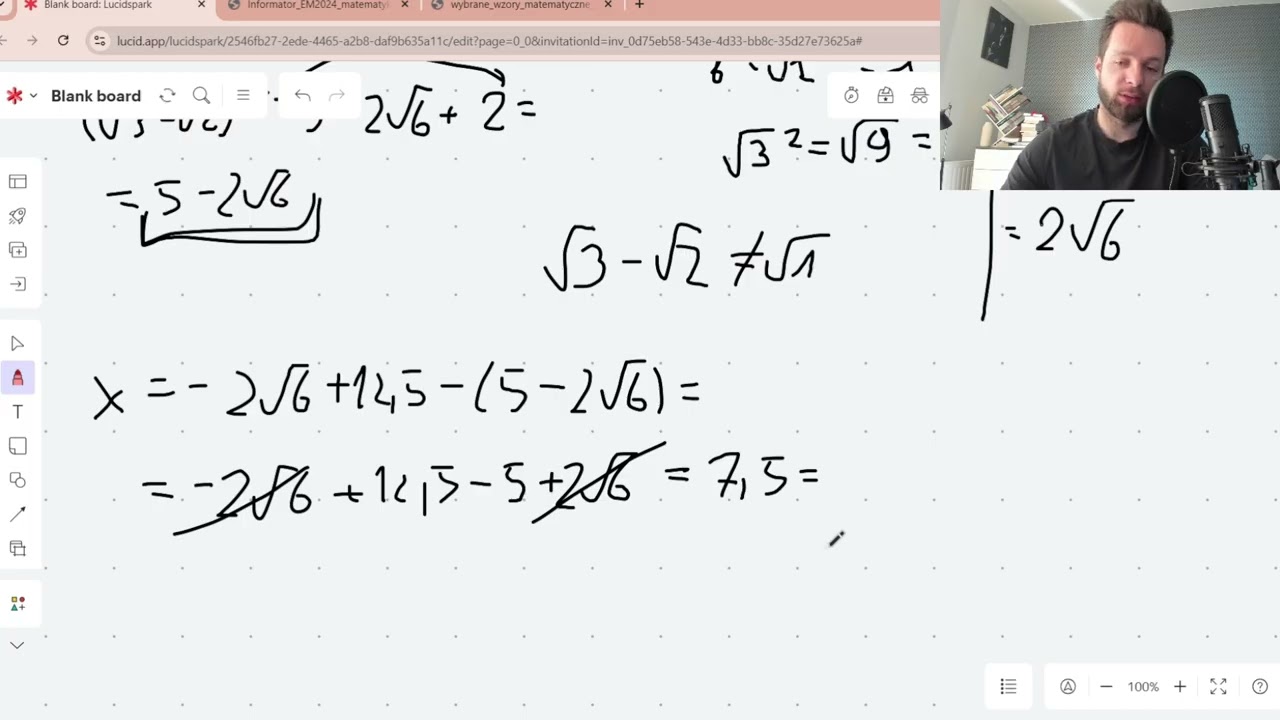 Blank board: Lucidspark
Informator_EM2024_matematyk
wybrane_wzory_matematyczne
lucid.app/lucidspark/2546fb27-2ede-4465-a2b8-daf9b635a11c/edit?page=0_0&invitationId=inv_0d75eb58-543e-4d33-bb8c-35d27e73625a#
Blank board
2√6 + 2 =
√3² = √9 =
= 5 - 2√6
= 2√6
√3 - √2 ≠ √1
x = - 2√6 + 12,5 - (5 - 2√6) =
= -2√6 + 12,5 - 5 + 2√6 = 7,5 =
T
100%